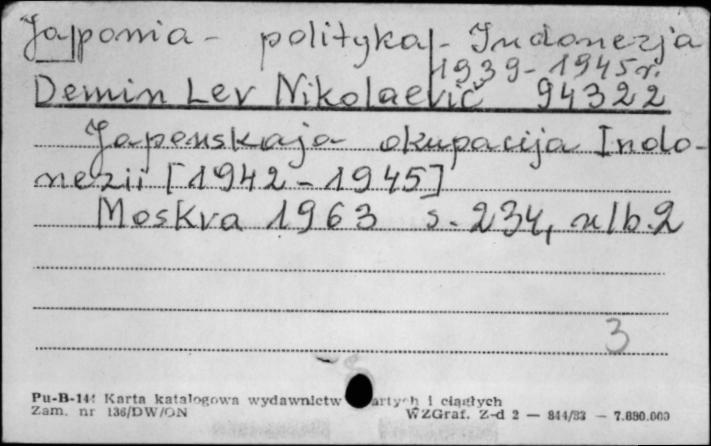 Japonia - polityka - Indonezja
1939-1945 r.
Demin Lev Nikolaevič 94322
Japonskaja okupacija Indo-
nezii [1942-1945]
Moskva 1963 s. 234, nlb. 2
3
Pu-B-144 Karta katalogowa wydawnictw zwartych i ciągłych
Zam. nr 136/DW/ON WZGraf. Z-d 2 — 844/83 — 7.890.000